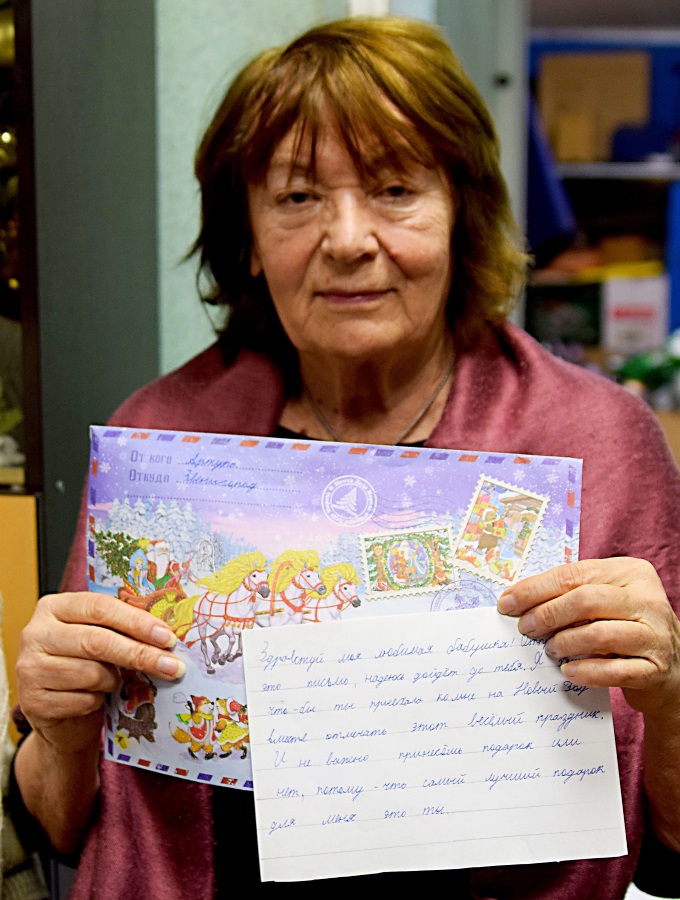 От кого
Откуда Звенигород
Здравствуй моя любимая бабушка!
это письмо, надеюсь дойдёт до тебя. Я
что-бы ты приехала ко мне на Новый Год
вместе отмечать этот весёлый праздник.
И не важно принесёшь подарок или
нет, потому-что самый лучший подарок
для меня это ты.